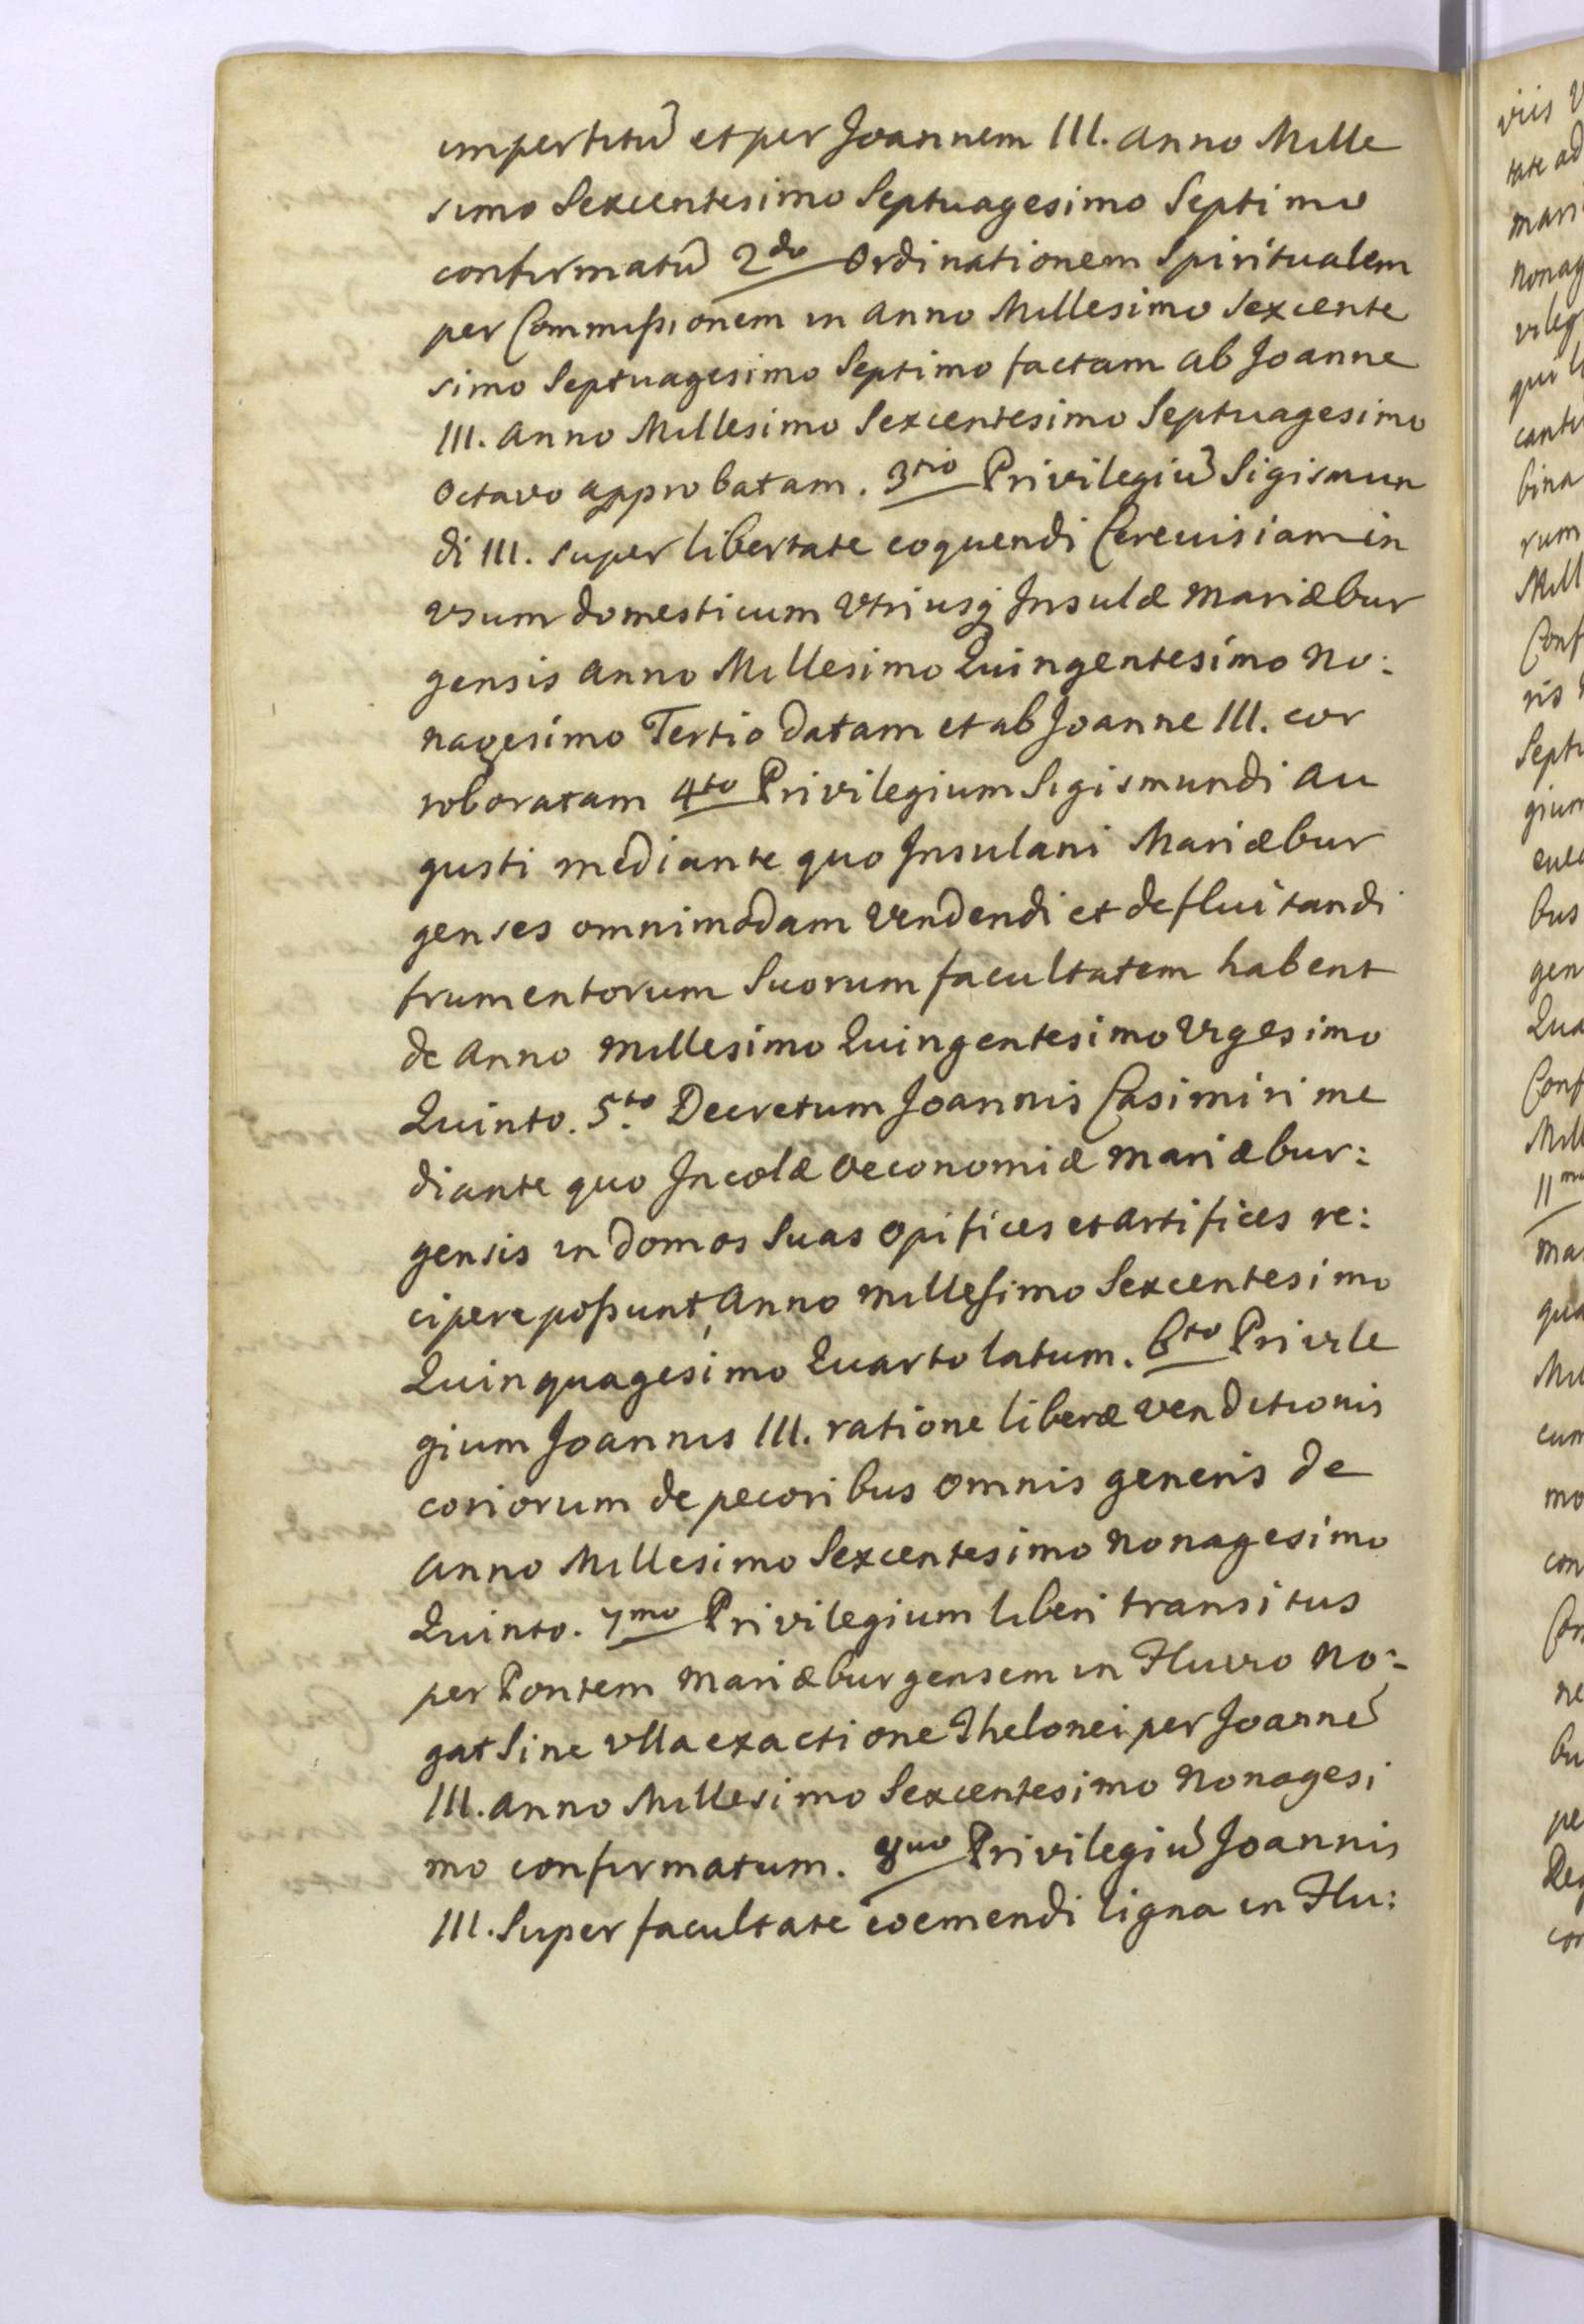 impertitũ et per Joannem III. anno Mille
simo Sexcentesimo Septuagesimo Septimo
confirmatũ 2do Ordinationem Spiritualem
per Commißionem in anno Millesimo Sexcente
simo Septuagesimo Septimo factam ab Joanne
III. anno Millesimo Sexcentesimo Septuagesimo
octavo approbatam. 3tio Privilegiũ Sigismun
di III. super libertate coquendi Cerevisiam in
vsum domesticum Vtriusq Insulæ Mariæbur
gensis anno Millesimo Quingentesimo No:
nagesimo Tertio datam et ab Joanne III. cor
roboratam 4to Privilegium Sigismundi Au
gusti mediante quo Insulani Mariæbur
genses omnimodam Vendendi et defluitandi
frumentorum Suorum facultatem habent
de anno Millesimo Quingentesimo Vigesimo
Quinto. 5to Decretum Joannis Casimiri me
diante quo Incolæ Oeconomiæ Mariæbur:
gensis in domos Suas opifices et artifices re:
cipere poßunt, anno Millesimo Sexcentesimo
Quinquagesimo Quarto latum. 6to Privile
gium Joannis III. ratione liberæ venditionis
coriorum de pecoribus omnis generis de
anno Millesimo Sexcentesimo nonagesimo
Quinto. 7mo Privilegium liberi transitus
per Pontem Mariæburgensem in Fluvio No:
gat Sine vlla exactione Thelonei per Joannẽ
III. anno Millesimo Sexcentesimo Nonagesi
mo confirmatum. 8uo Privilegiũ Joannis
III. Super facultate coemendi ligna in Flu:
viis
tate ad
mari
nonag
vileg
qui
cant
bina
rum
Mill
Conf
ris
Sept
gium
bus
gen
Qua
Conf
Mill
ma
qua
cum
mo
con
ne
bu
pe